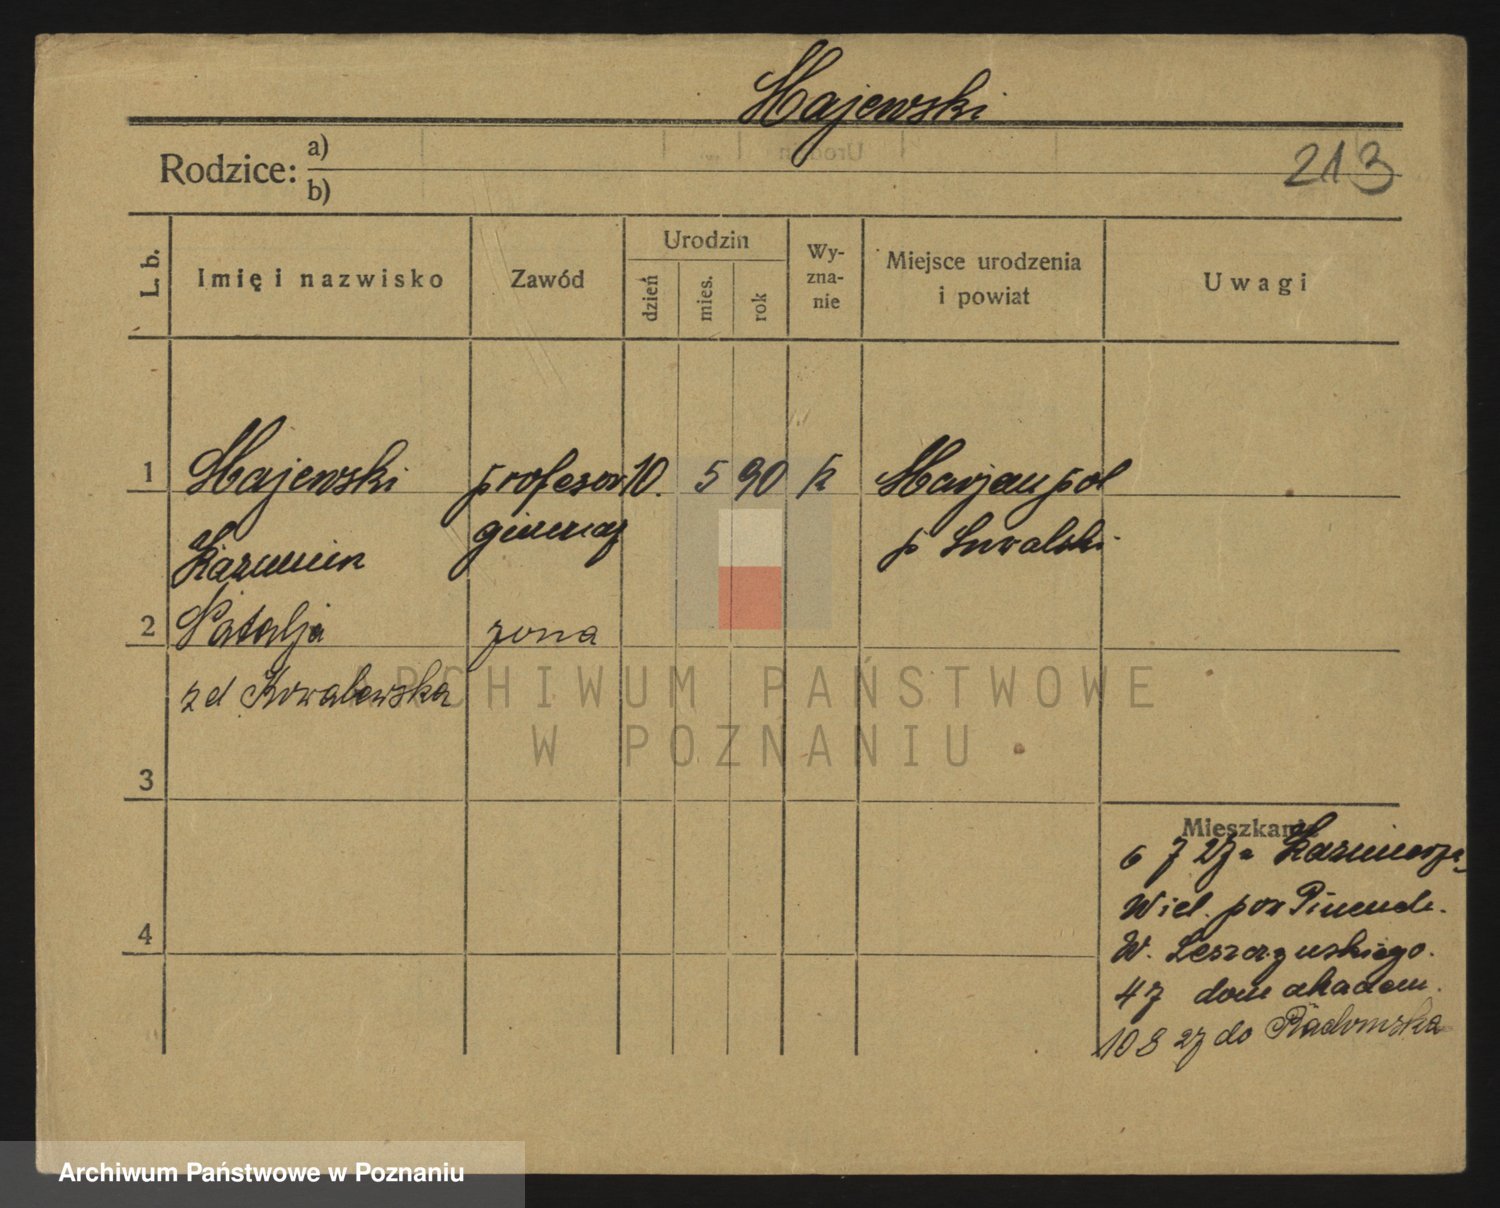 Majewski
Rodzice: a)
b)
213
L. b.
Imię i nazwisko
Zawód
Urodzin
dzień
mies.
rok
Wy-
zna-
nie
Miejsce urodzenia
i powiat
Uwagi
1 Majewski profesor 10. 5 90 k Marjampol
Kazimierz gimnaz p Suwalski
2 Natalja żona
zd Kowalewska
ARCHIWUM PAŃSTWOWE
W POZNANIU
3
Mieszkania
6 7 27 Kazimierza
Wiel. pow
4
W. Leszczyńskiego.
47 dom akadem.
10 8 27 do Radomska
Archiwum Państwowe w Poznaniu